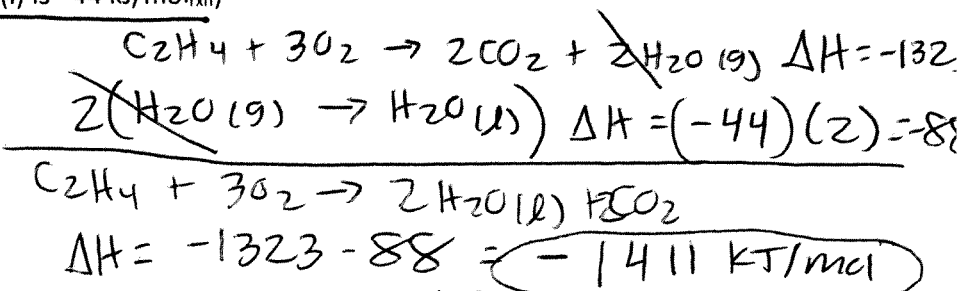 C2H4 + 3O2 → 2CO2 + 2H2O (g) ΔH = -132
2(H2O (g) → H2O (l)) ΔH = (-44)(2) = -88
C2H4 + 3O2 → 2H2O (l) + 2CO2
ΔH = -1323 - 88 = -1411 KJ/mol